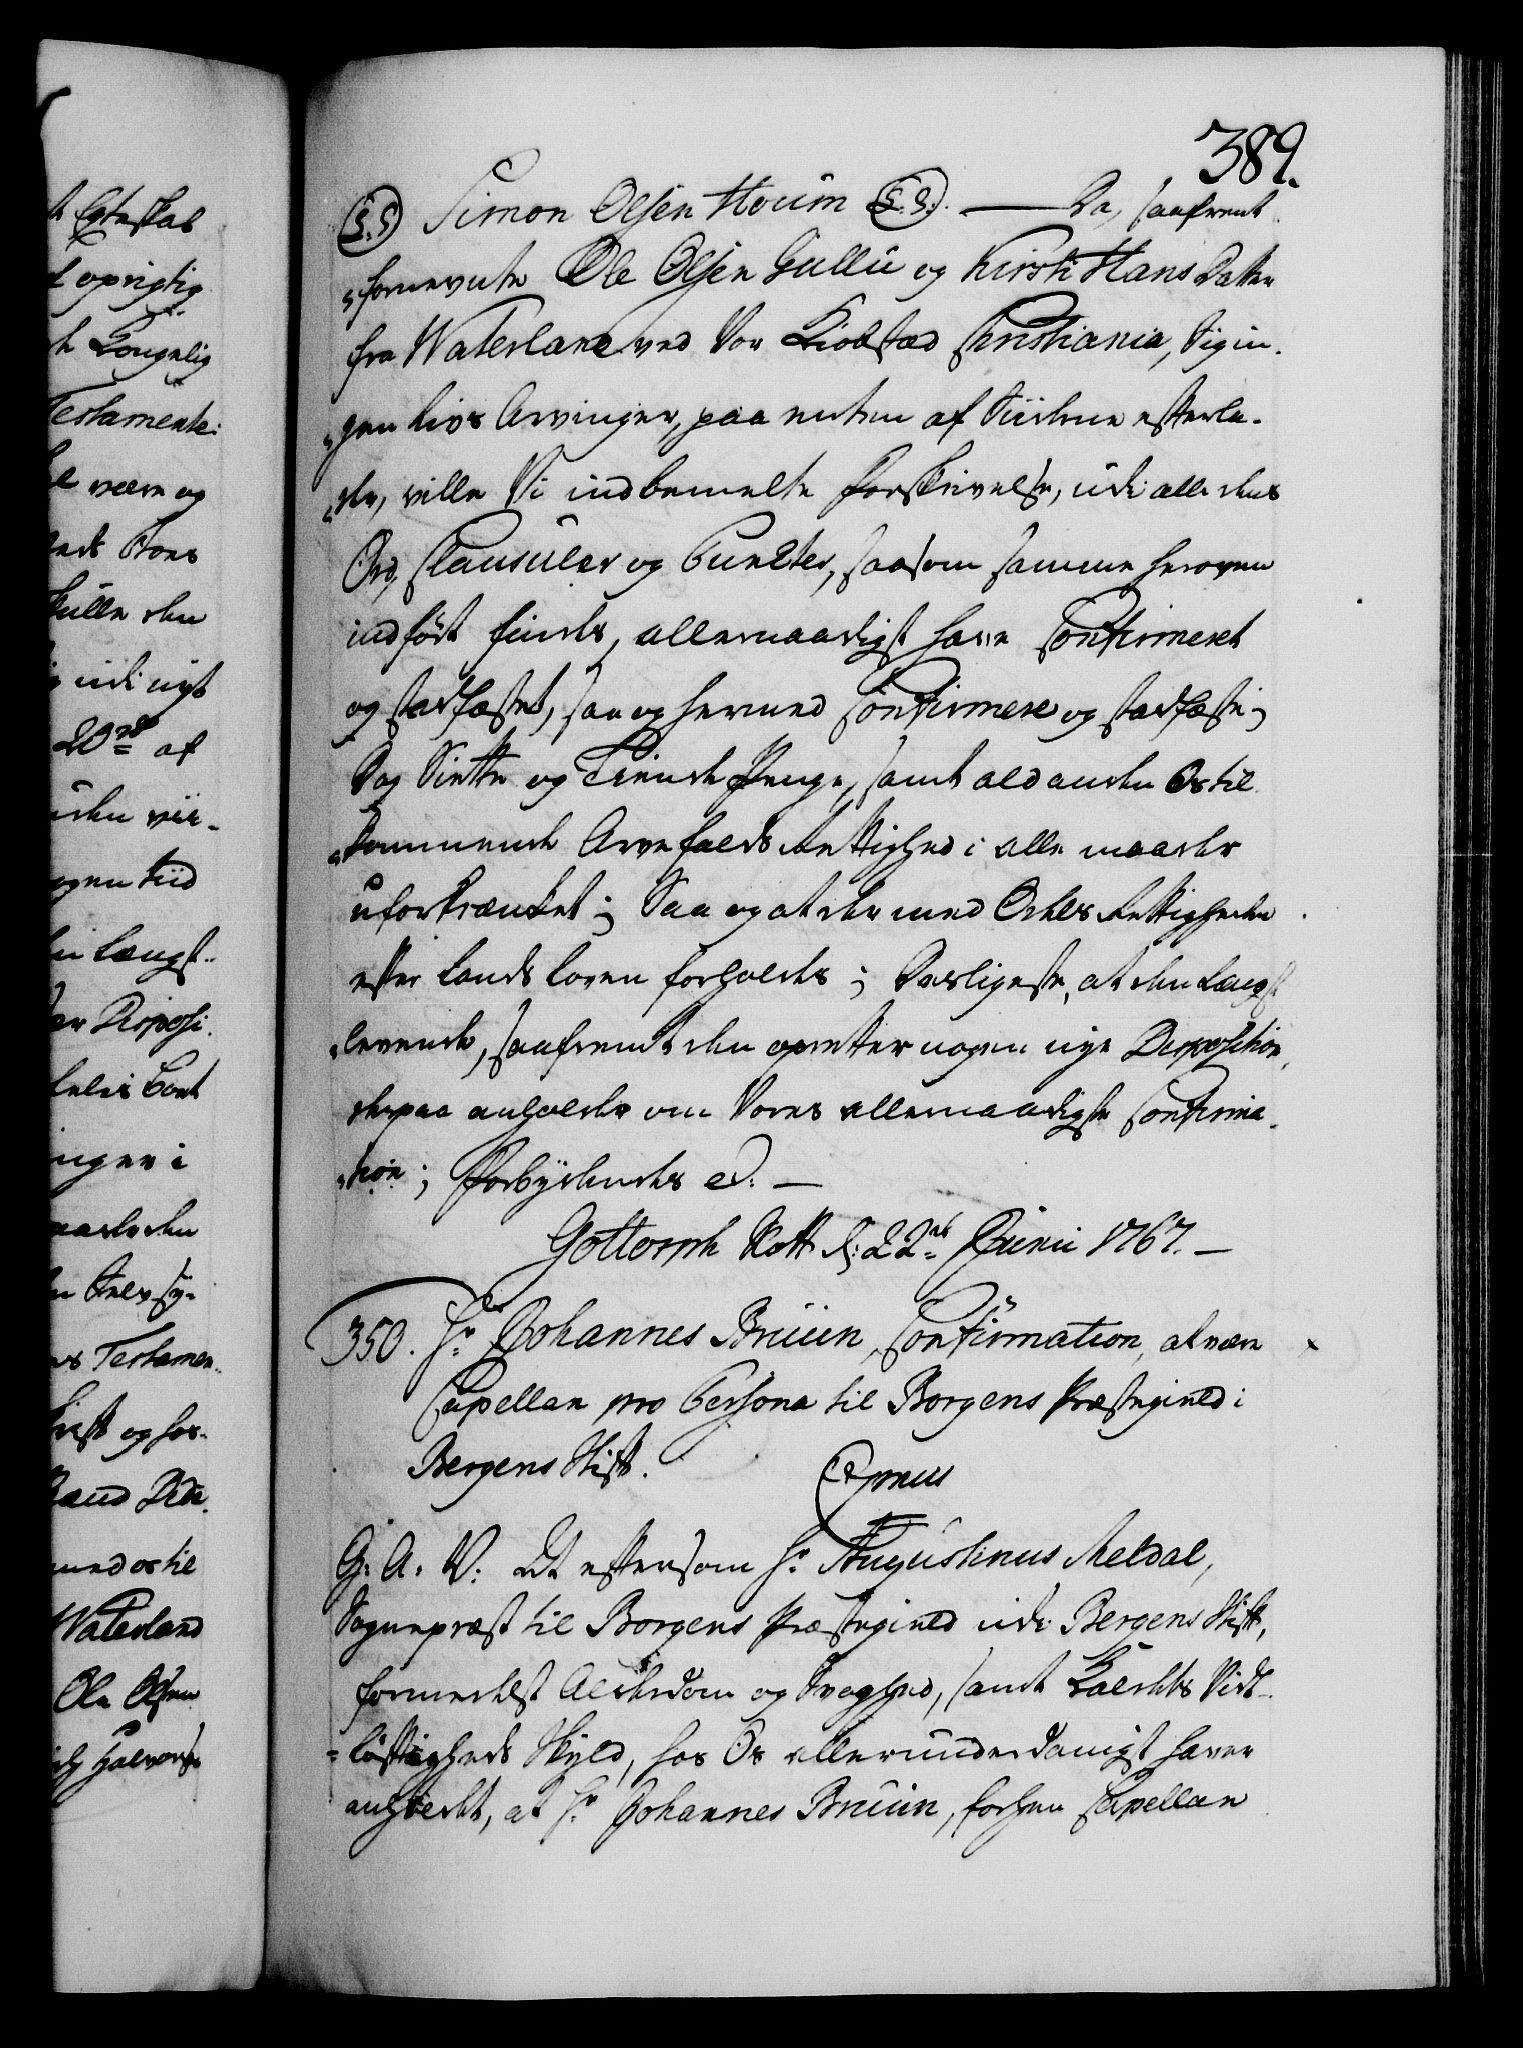 389.
(L.S.) Simon Olsen Houm (L.S.). — Da, saafremt
fornevnte Ole Olsen Gullu og Kirsti Hans Datter
fra Waterland ved Vor Kiobstæd Christiania, sig in-
gen Livs Arvinger, paa enten af Siiderne efterla-
der, ville Vi indbemelte Forskrivelse, udi alle dens
Ord, Clausuler og Puncter, saasom samme heroven
indført findes, allernaadigst have Confirmeret
og stadfæstet, saa og hermed Confirmere og stadfæste;
Dog Siette og Tiende Penge, samt ald anden Os til-
kommende Arvefalds Rettighed i alle maader
uforkrænket; Saa og at der med Odels Rettigheden
efter Lands Loven forholdes; Desligeste, at den Længst
levende, saafremt den opretter nogen nye Disposition,
derpaa anholder om Vores allernaadigste Confirma-
tion; Forbydendes &. —
Gottorph Slott d: 22de Junii 1767. —
350. Hr. Johannes Bruun, Confirmation, at være
Capellan pro Persona til Borgens Præstegield i
Bergens Stift.
Cyprœus
G. A. V. At eftersom Hr. Augustinus Meldal,
Sognepræst til Borgens Præstegield udi Bergens Stift,
formedelst Alderdom og Svaghed, samt Kaldets Vidt-
løftigheds Skyld, hos Os allerunderdanigst haver
anholdet, at Hr. Johannes Bruun, forhen Capellan